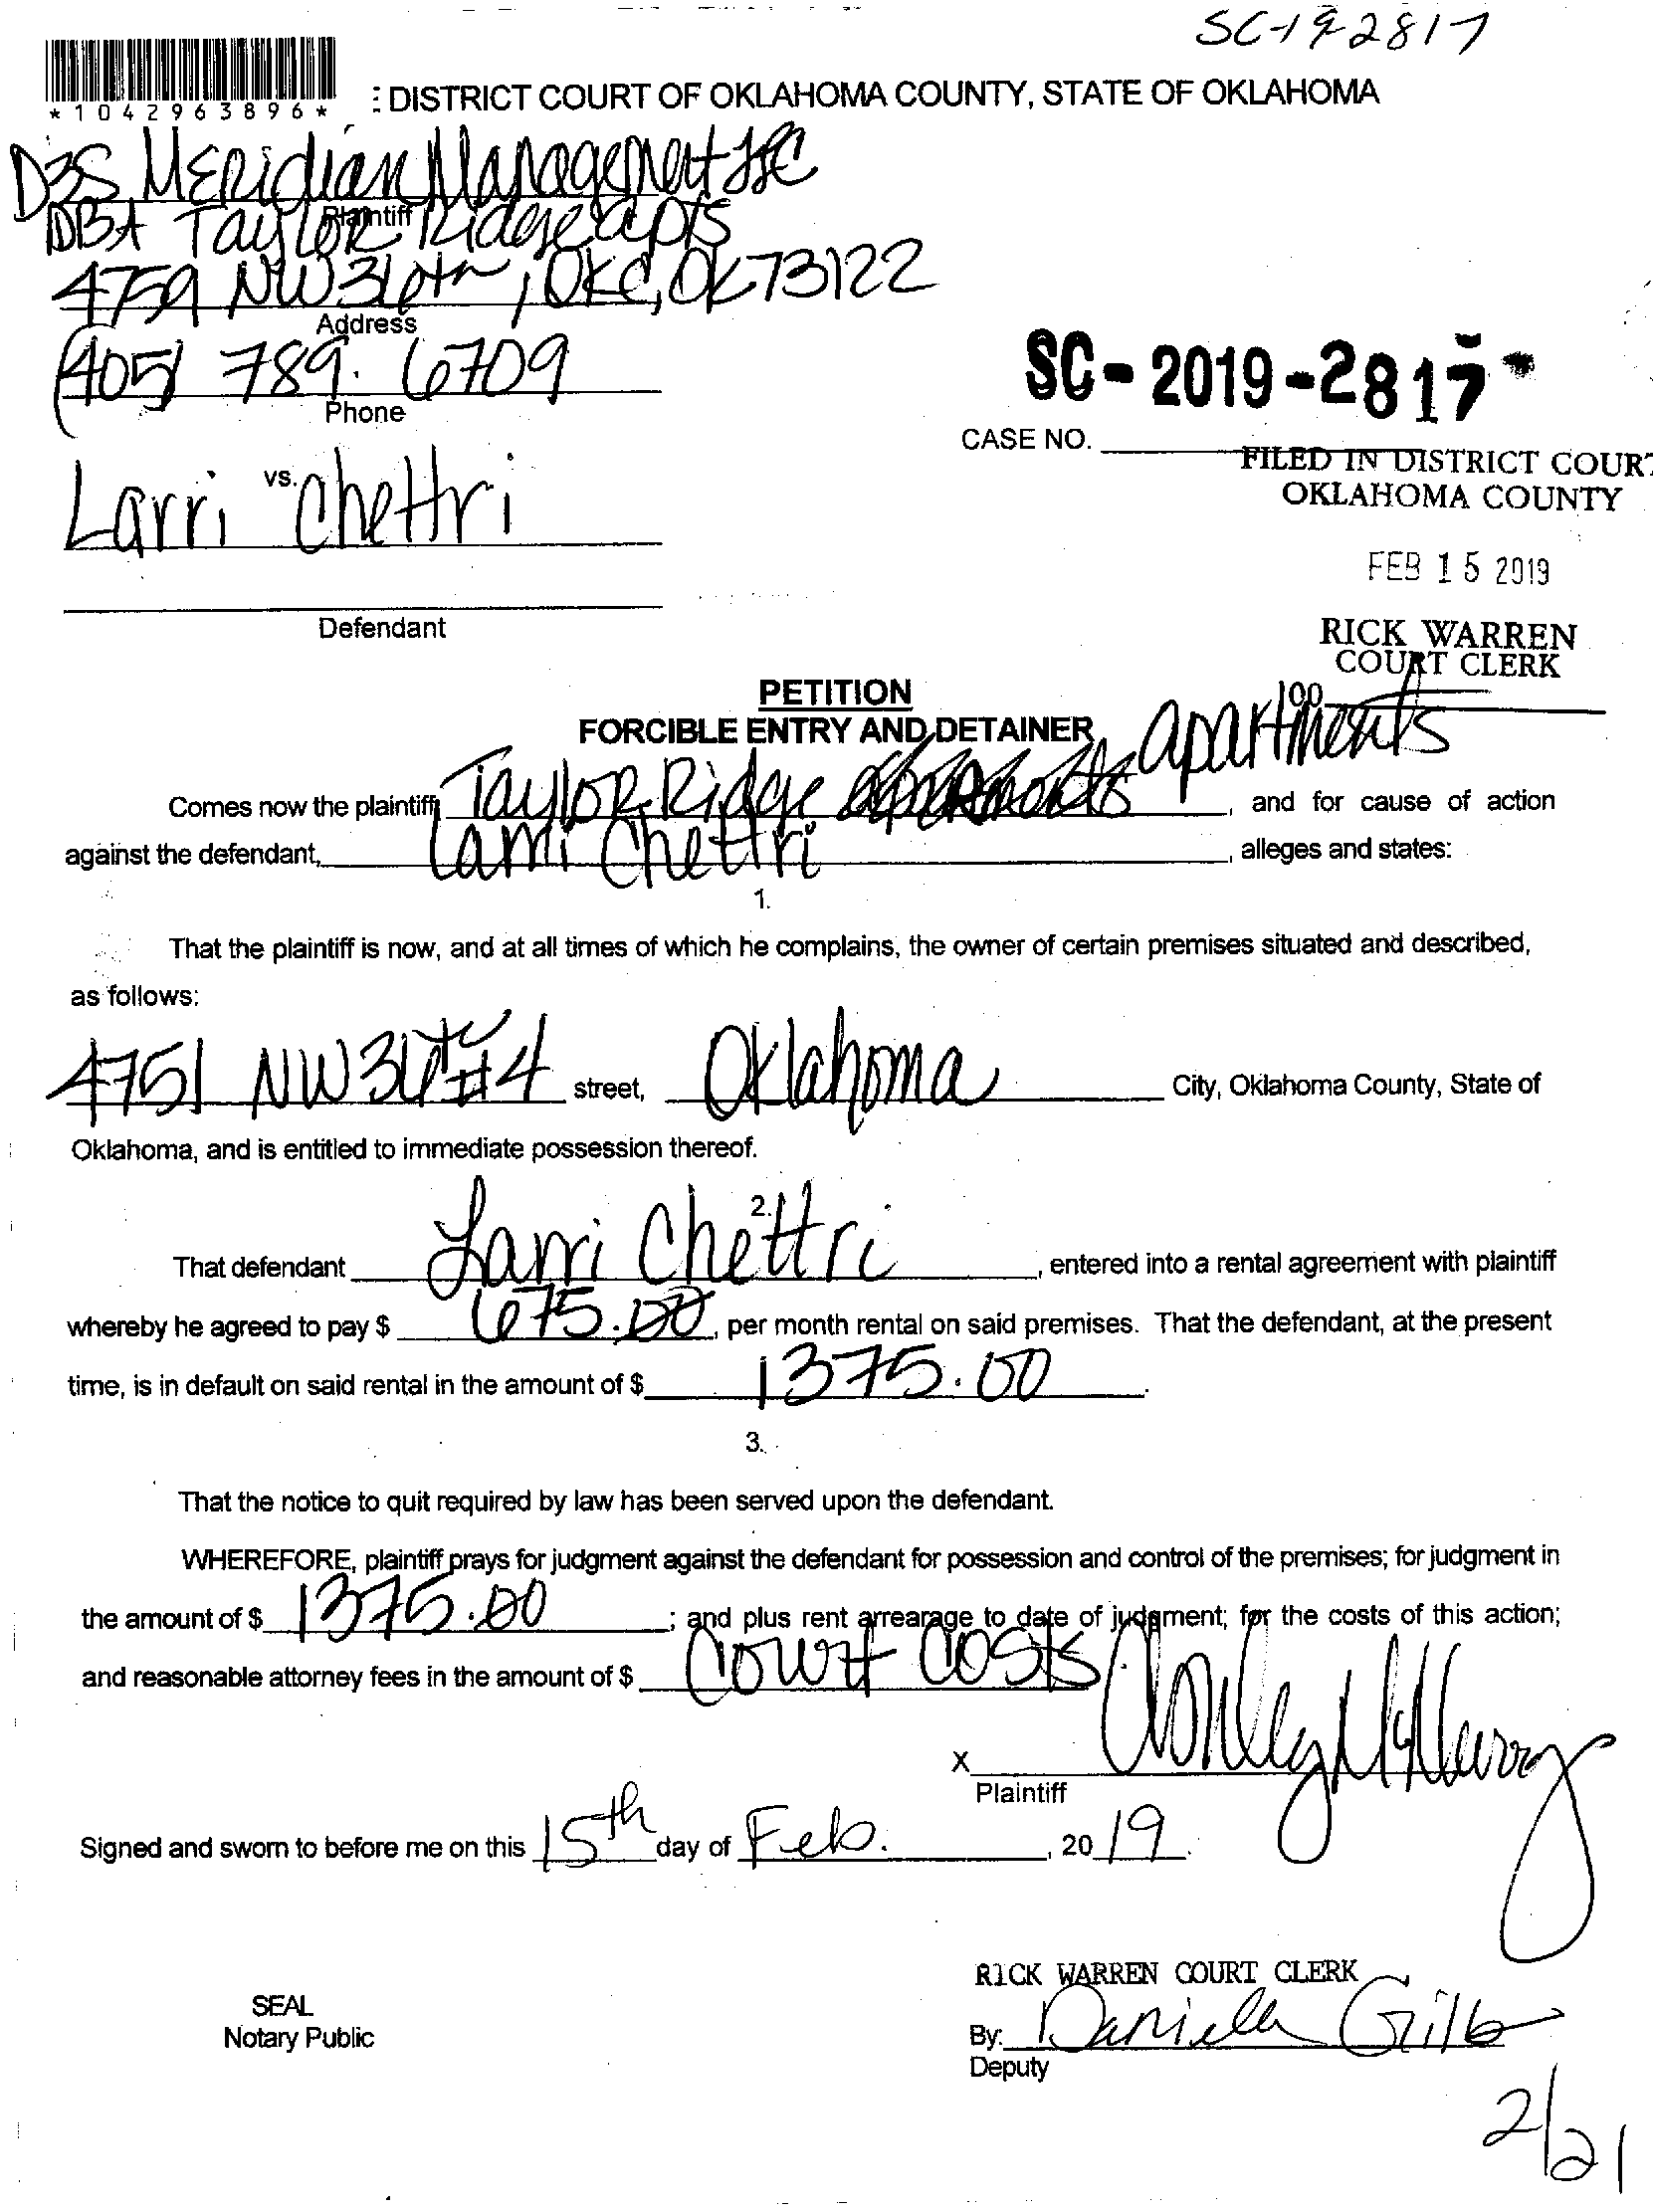 SC-19-2817
*1042963896*
: DISTRICT COURT OF OKLAHOMA COUNTY, STATE OF OKLAHOMA
D3S MERidian Management LLC
Plaintiff
DBA Taylor Ridge apts
4759 NW 36th, OKC, OK 73122
Address
(405) 789.6709
Phone
SC-2019-2817
CASE NO.
FILED IN DISTRICT COURT
OKLAHOMA COUNTY
vs.
Larri Chettri
FEB 15 2019
Defendant
RICK WARREN
COURT CLERK
100
PETITION
FORCIBLE ENTRY AND DETAINER
Comes now the plaintiff, Taylor Ridge apartments, and for cause of action
against the defendant, Larri Chettri, alleges and states:
1.
That the plaintiff is now, and at all times of which he complains, the owner of certain premises situated and described,
as follows:
4751 NW 36th #4 street, Oklahoma City, Oklahoma County, State of
Oklahoma, and is entitled to immediate possession thereof.
2.
That defendant Larri Chettri, entered into a rental agreement with plaintiff
whereby he agreed to pay $ 675.00, per month rental on said premises. That the defendant, at the present
time, is in default on said rental in the amount of $ 1375.00.
3.
That the notice to quit required by law has been served upon the defendant.
WHEREFORE, plaintiff prays for judgment against the defendant for possession and control of the premises; for judgment in
the amount of $ 1375.00; and plus rent arrearage to date of judgment; for the costs of this action;
and reasonable attorney fees in the amount of $ Court Costs
X
Plaintiff
Signed and sworn to before me on this 15th day of Feb., 2019.
RICK WARREN COURT CLERK
SEAL
Notary Public
By: Daniella
Deputy
2/21